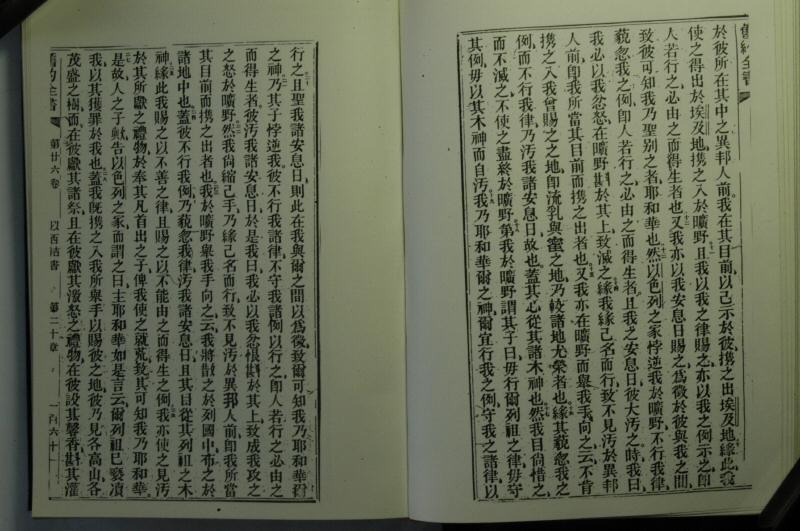 舊約全書
於彼所在其中之異邦人前我在其目前以己示於彼携之出埃及地緣此我
使之得出於埃及地携之入於曠野且我以我之律賜之亦以我之例示之卽
人若行之必由之而得生者也又我亦以我安息日賜之爲徵於彼與我之間
致彼可知我乃聖別之者耶和華也然以色列之家悖逆我於曠野不行我律
藐忽我之例卽人若行之必由之而得生者且我之安息日彼大汚之時我曰
我必以我忿怒在曠野斟於其上致滅之緣我緣己名而行致不見汚於異邦
人前卽我所當其目前而携之出者也又我亦在曠野而舉我手向之云不肯
携之入我曾賜之之地卽流乳與蜜之地乃較諸地尤榮者也緣其藐忽我之
例而不行我律乃汚我安息日故也蓋其心從其諸木神也然我目尙惜之
而不滅之不使之盡終於曠野第我於曠野謂其子曰毋行爾列祖之律毋守
其例毋以其木神而自汚我乃耶和華爾之神爾宜行我之例守我之諸律以
行之且聖我諸安息日則此在我與爾之間以爲徵致爾可知我乃耶和華爾
之神乃其子悖逆我彼不行我諸律不守我諸例以行之卽人若行之必由之
而得生者彼汚我諸安息日於是我曰我必以我忿恨斟於其上致成我攻之
之怒於曠野然我尙縮己手乃緣己名而行致不見汚於異邦人前卽我所當
其目前而携之出者也我於曠野舉我手向之云我將散之於列國中布之於
諸地中也蓋彼不行我例乃藐忽我律汚我諸安息日且其目從其列祖之木
神緣此我賜之以不善之律且賜之以不能由之而得生之例我亦使之見汚
於其所獻之禮物於奉其凡首出之子俾我使之就荒致其可知我乃耶和華
是故人之子歟告以色列之家而謂之曰主耶和華如是言云爾列祖已褻瀆
我以其獲罪於我也蓋我旣携之入我所舉手以賜彼之地彼乃見各高山各
茂盛之樹而在彼獻其諸祭且在彼獻其激怒之禮物在彼設其馨香斟其灌
舊約全書 第廿六卷 以西結書 第二十章 一百六十